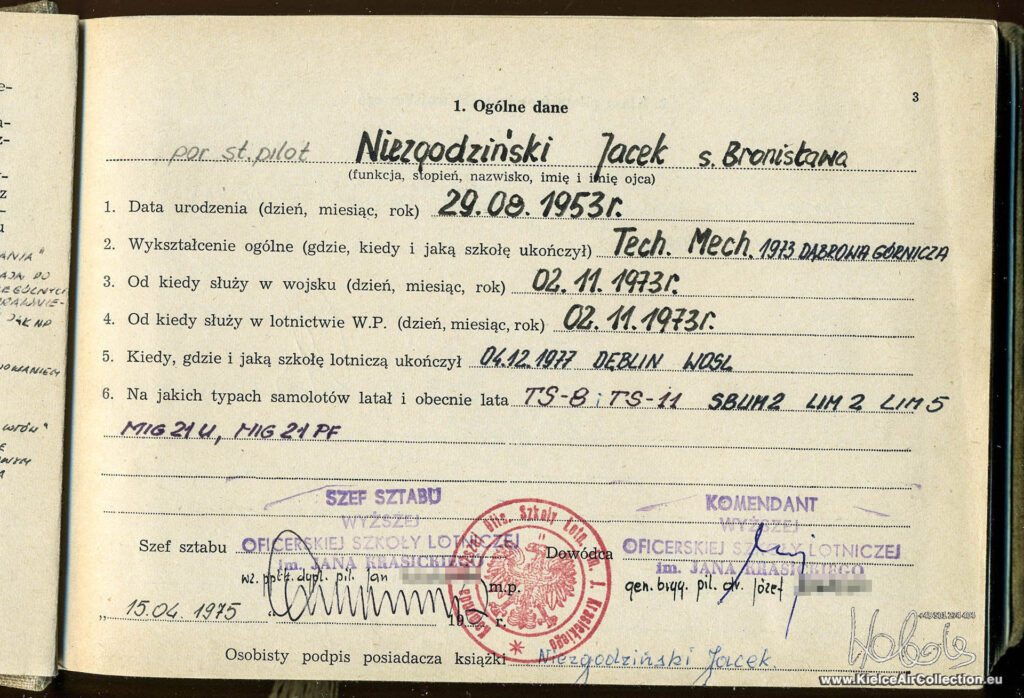 3
1. Ogólne dane
por st. pilot Niezgodziński Jacek s. Bronisława
(funkcja, stopień, nazwisko, imię i imię ojca)
1. Data urodzenia (dzień, miesiąc, rok) 29.08.1953r.
2. Wykształcenie ogólne (gdzie, kiedy i jaką szkołę ukończył) Tech. Mech. 1973 DĄBROWA GÓRNICZA
3. Od kiedy służy w wojsku (dzień, miesiąc, rok) 02.11.1973r.
4. Od kiedy służy w lotnictwie W.P. (dzień, miesiąc, rok) 02.11.1973r.
5. Kiedy, gdzie i jaką szkołę lotniczą ukończył 04.12.1977 DĘBLIN WOSL
6. Na jakich typach samolotów latał i obecnie lata TS-8 i TS-11 SBLIM2 LIM 2 LIM 5
MIG 21 U, MIG 21 PF
SZEF SZTABU
WYŻSZEJ
OFICERSKIEJ SZKOŁY LOTNICZEJ
im. JANA KRASICKIEGO
Szef sztabu
wz. ppłk dypl. pil. Jan
m.p.
KOMENDANT
WYŻSZEJ
OFICERSKIEJ SZKOŁY LOTNICZEJ
im. JANA KRASICKIEGO
Dowódca
gen. bryg. pil. dr. Józef
Szkoły Lotn. im. J. Krasickiego
„15.04.1975 " 19 r.
Osobisty podpis posiadacza książki Niezgodziński Jacek.
www.KielceAirCollection.eu